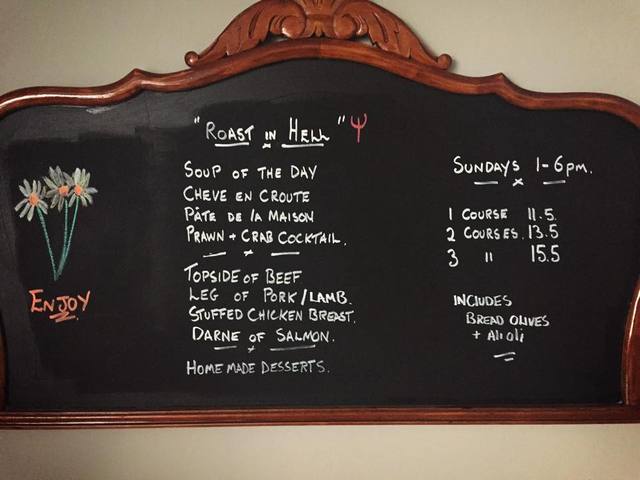 "ROAST IN HELL"
SOUP OF THE DAY
CHEVE EN CROUTE
PÂTE DE lA MAISON
PRAWN + CRAB COCKTAIL.
TOPSIDE OF BEEF
LEG OF PORK/LAMB.
STUFFED CHICKEN BREAST.
DARNE OF SALMON.
HOME MADE DESSERTS.
ENJOY
SUNDAYS 1-6pm.
1 COURSE 11.5.
2 COURSES. 13.5
3 " 15.5
INCLUDES
BREAD OLIVES
+ Ali oli